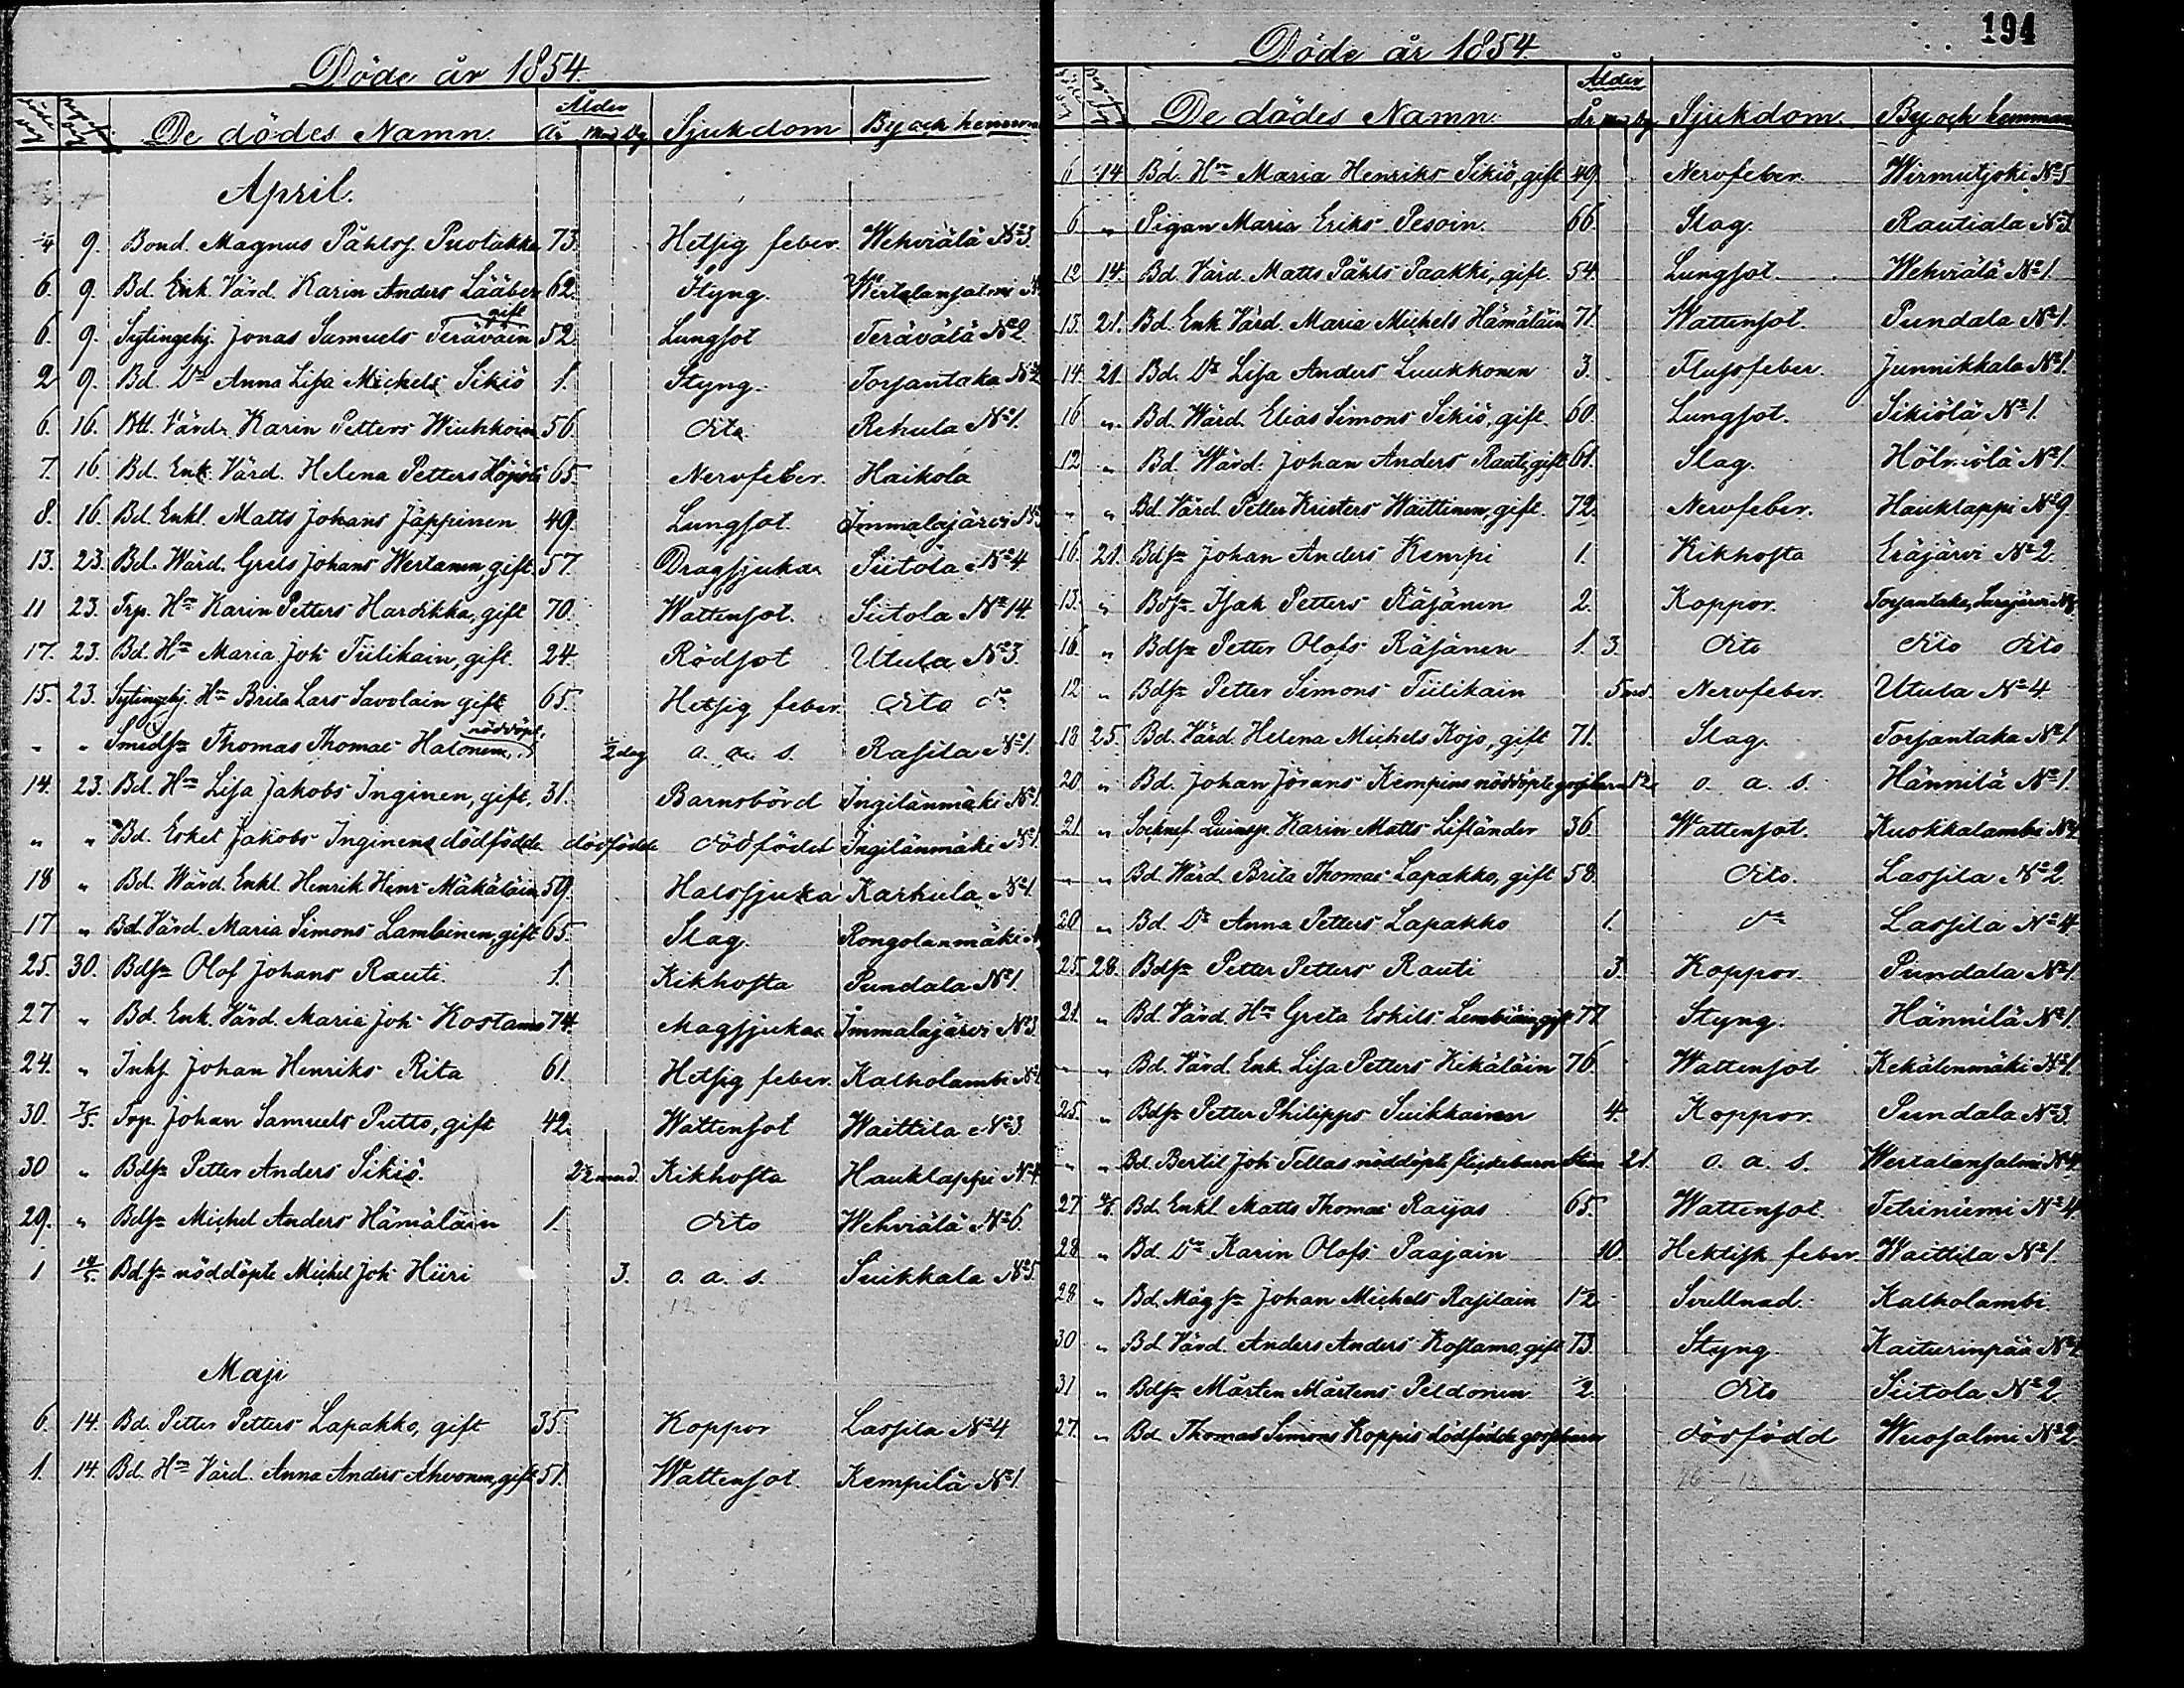 Döde år 1854.
De dödes Namn. Ålder År Mnd Dg Sjukdom By och hemman
April.
4 9. Bond. Magnus Påhlss. Puolakka 73. Hetsig feber. Wehviälä No 3.
6. 9. Bd. Enk. Värd. Karin Anders Lääber 62. Styng. Wertalansalmi
6. 9. Sytingshj. Jonas Samuels Teräväin gift 52. Lungsot Terävälä No 2
2 9. Bd. Dr Anna Lisa Michels Sikiö 1. Styng. Torsantaka No 2
6. 16. Btl. Värd. Karin Petters Wiuhkoin 56. dito Rehula No 1.
7. 16 Bd. Enk. Värd. Helena Petters 65. Nervfeber. Haikola
8. 16. Bd. Enkl. Matts Johans Jäppinen 49. Lungsot. Immalajärvi No 3
13. 23. Bd. Wärd. Grels Johans Wertanen, gift. 57. Dragsjukan Siitola No 4
11 23. Trp. Hu Karin Petters Hardikka, gift 70. Wattensot. Siitola No 14.
17. 23. Bd. Hu Maria Joh: Tiilikain, gift. 24. Rödsot Utula No 3.
15. 23. Sytingshj. Hu Brita Lars Savolain gift 65. Hetsig feber. dito do
" " Smedsn Thomas Thomae Halonen, nöddöpt. 1/2 dag o. a. s. Rasila No 1.
14. 23. Bd. Hu Lisa Jakobs Inginen, gift. 31. Barnsbörd Ingilänmäki No 1.
" " Bd. Eskel Jakobs Inginens dödfödde dödfödde dödfödd Ingilänmäki No 1.
18 " Bd. Wärd. Enkl. Henrik Henr: Mäkäläin 59. Halssjuka Karhula No 1.
17 " Bd. Värd. Maria Simons Lambinen, gift 65. Slag. Rongolanmäki
25. 30. Bdsn Olof Johans Rauti. 1. Kikhosta Pundala No 1.
27 " Bd. Enk. Värd. Maria Joh: Kostamo 74. Magsjukan Immalajärvi No 3.
24. " Inhs. Johan Henriks Rita 61. Hetsig feber. Kalholambi No 2
30. 7/5. Trp. Johan Samuels Putto, gift 42. Wattensot Waittila No 3.
30 " Bdsn Petter Anders Sikiö. 2 1/2 mnd. Kikhosta Hauklappi No 4
29. " Bdsn Michel Anders Hämäläin 1. dito Wehviälä No 6.
1 14/5. Bdsn nöddöpte Michel Joh: Hiiri 3. o. a. s. Suikkala No 5.
12-10
Maji
6. 14. Bd. Petter Petters Lapakko, gift 35. Koppor Lassila No 4
1. 14. Bd. Hu Värd. Anna Anders Ahvonen, gift 51. Wattensot. Kempilä No 1.
194
Döde år 1854.
De dödes Namn. Ålder År Mnd Dg Sjukdom. By och hemman
6 14 Bd. Hu Maria Henriks Sikiö, gift 49. Nervfeber Wirmutjoki No 5
6 " Pigan Maria Eriks Pesoin. 66. Slag. Rautiala No 3
12 14. Bd. Värd. Matts Påhls Paakki, gift. 54. Lungsot. Wehviälä No 1.
13. 21. Bd. Enk. Värd. Maria Michels Hämäläin 71. Wattensot. Pundala No 1.
14. 21. Bd. Dr Lisa Anders Luukkonen 3. Flussfeber. Junnikkala No 1.
16 " Bd. Wärd. Elias Simons Sikiö, gift. 60. Lungsot. Sikiölä No 1.
12 " Bd. Wärd. Johan Anders Rauti, gift 61. Slag. Hölmölä No 1.
" " Bd. Värd. Petter Kristers Waittinen, gift. 72. Nervfeber. Hauklappi No 9
16. 21. Bdsn Johan Anders Kempi 1. Kikhosta Eräjärvi No 2.
13. " Bdsn Isak Petters Räsänen 2. Koppor. Torsantaka,
16. " Bdsn Petter Olofs Räsänen 1. 3. dito dito dito
12 " Bdsn Petter Simons Tiilikain 5 md. Nervfeber. Utula No 4.
18 25. Bd. Värd. Helena Michels Kojo, gift 71. Slag. Torsantaka No 1.
20 " Bd. Johan Jörans Kempins nöddöpte gossbarn 1/2 o. a. s. Hännilä No 1.
21 " Sockenf. Qvinsp. Karin Matts Lifländer 36 Wattensot. Kuokkalambi No 4
" " Bd. Wärd. Brita Thomae Lapakko, gift 58. dito. Lassila No 2.
20 " Bd. Dr Anna Petters Lapakko 1. do Lassila No 4
25. 28. Bdsn Petter Petters Rauti 3. Koppor. Pundala No 1.
21. " Bd. Värd. Hu Greta Eskils Lembiäin, gift 77. Styng. Hännilä No 1.
" " Bd. Värd. Enk. Lisa Petters Kekäläin 76. Wattensot Kekälenmäki No 1.
25. " Bdsn Petter Philipps Suikkainen 4. Koppor. Pundala No 3.
" " Bd. Bertil Joh: Tellas nöddöpte flickebarn 21. o. a. s. Wertalansalmi No 4
27 4/6. Bd. Enkl. Matts Thomae Raijas 65. Wattensot. Tetriniemi No 4.
28 " Bd. Dr Karin Olofs Paajain 10. Hektisk feber. Waittila No 1.
28 " Bd. Mågsn Johan Michels Rasilain 1/2 Svullnad. Kalholambi
30 " Bd. Värd. Anders Anders Kostamo, gift 73. Styng Kaiturinpää No 1
31 " Bdsn Mårten Mårtens Peldonen 2. dito Siitola No 2.
27. " Bd. Thomas Simons Koppis dödfödde gossbarn dödfödd Wuosalmi No 2.
16-13